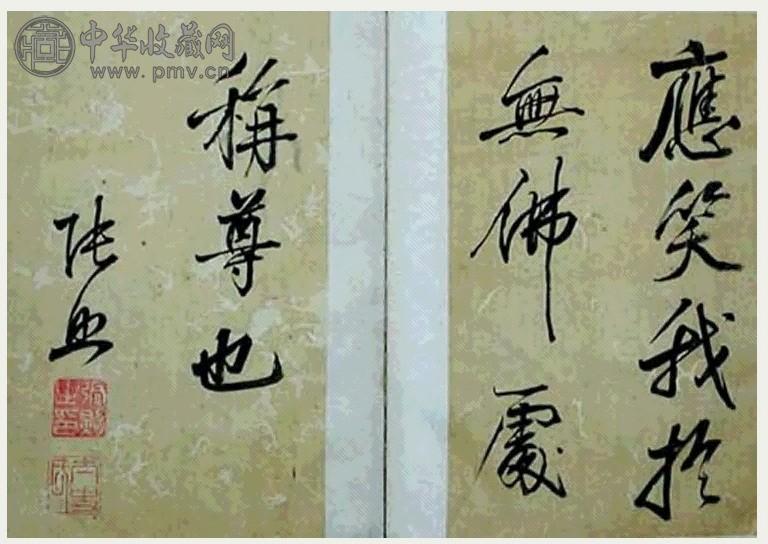 應笑我於
無佛處
稱尊也
張照
中华收藏网
www.pmv.cn